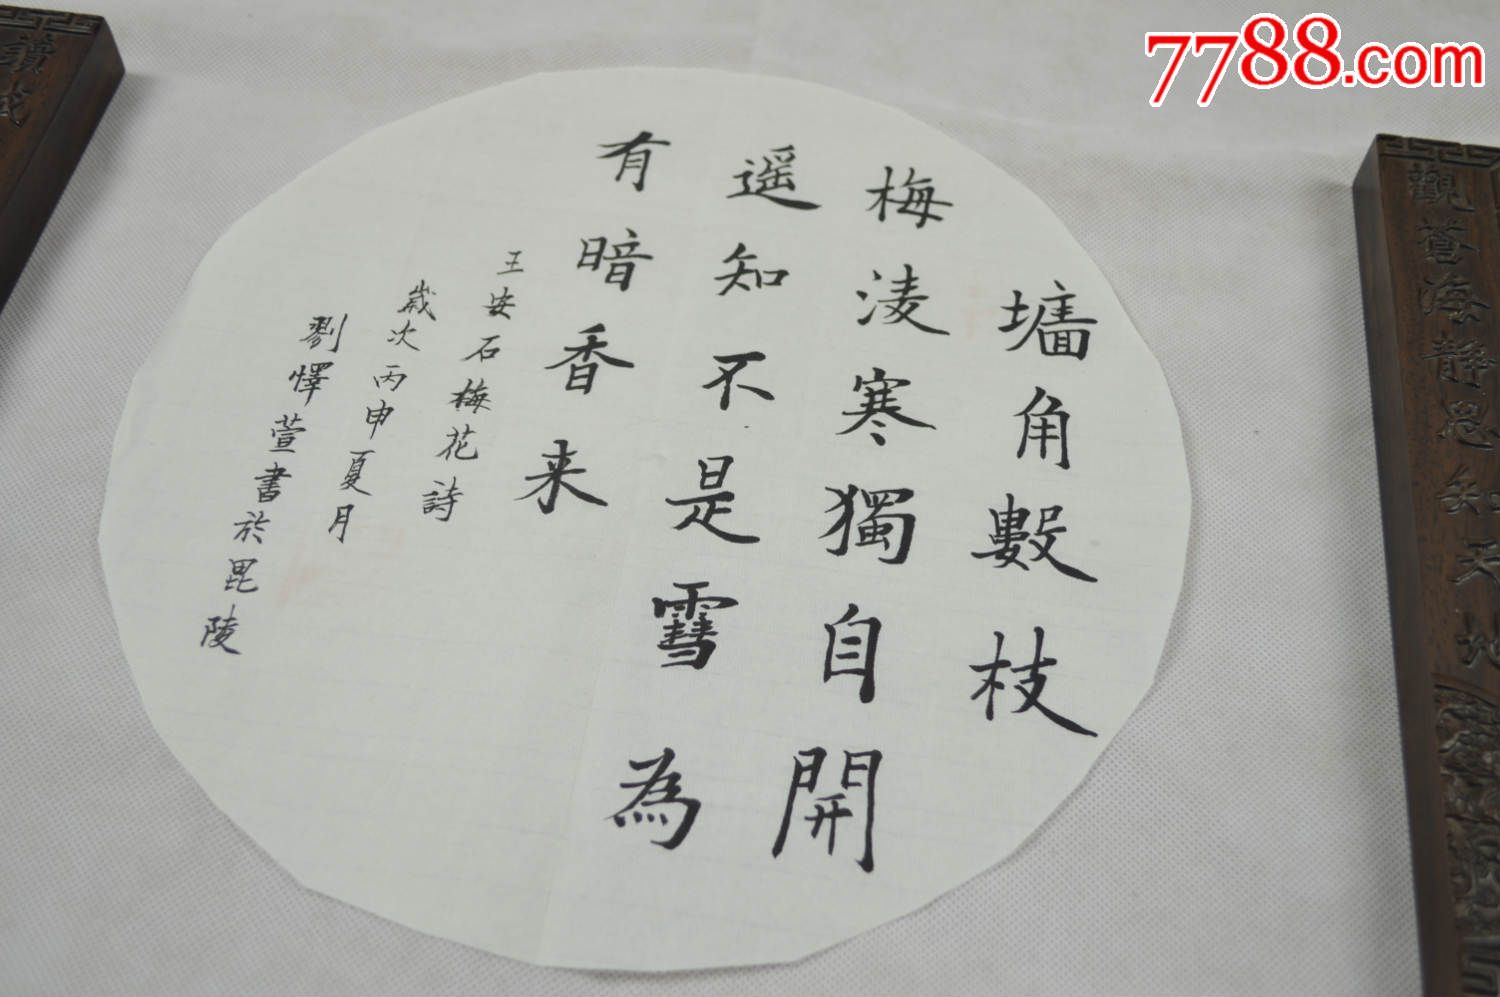 墻角數枝
梅淩寒獨自開
遥知不是雪為
有暗香来
王安石梅花詩
歲次丙申夏月
劉懌萱書於毘陵
觀蒼海靜思知天地
讀
7788.com